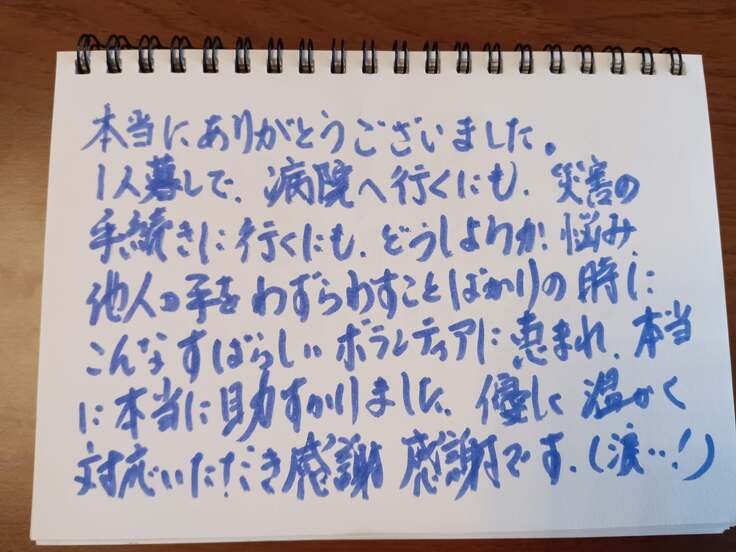 本当にありがとうございました。
1人暮しで、病院へ行くにも、災害の
手続きに行くにも、どうしようか悩み、
他人の手をわずらわすことばかりの時に
こんなすばらしいボランティアに恵まれ、本当
に本当に助すかりました、優しく温かく
対応いただき感謝感謝です。(涙…!)